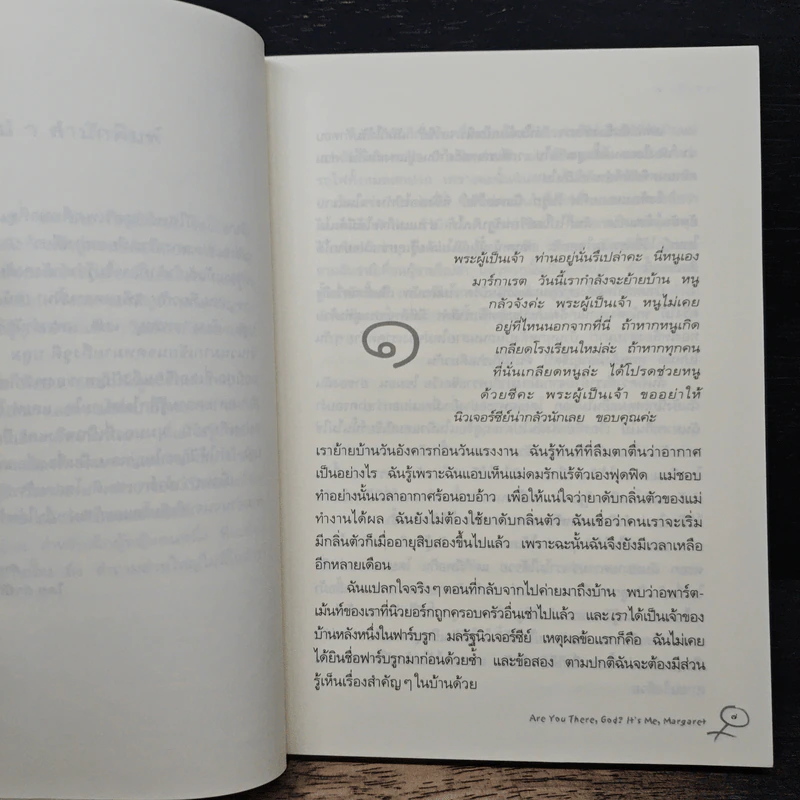 พระผู้เป็นเจ้า ท่านอยู่นั่นรึเปล่าคะ นี่หนูเอง
มาร์กาเรต วันนี้เรากำลังจะย้ายบ้าน หนู
กลัวจังค่ะ พระผู้เป็นเจ้า หนูไม่เคย
อยู่ที่ไหนนอกจากที่นี่ ถ้าหากหนูเกิด
เกลียดโรงเรียนใหม่ล่ะ ถ้าหากทุกคน
ที่นั่นเกลียดหนูล่ะ ได้โปรดช่วยหนู
ด้วยซีคะ พระผู้เป็นเจ้า ขออย่าให้
นิวเจอร์ซีย์น่ากลัวนักเลย ขอบคุณค่ะ
๑
เราย้ายบ้านวันอังคารก่อนวันแรงงาน ฉันรู้ทันทีที่ลืมตาตื่นว่าอากาศ
เป็นอย่างไร ฉันรู้เพราะฉันแอบเห็นแม่ดมรักแร้ตัวเองฟุดฟิด แม่ชอบ
ทำอย่างนั้นเวลาอากาศร้อนอบอ้าว เพื่อให้แน่ใจว่ายาดับกลิ่นตัวของแม่
ทำงานได้ผล ฉันยังไม่ต้องใช้ยาดับกลิ่นตัว ฉันเชื่อว่าคนเราจะเริ่ม
มีกลิ่นตัวก็เมื่ออายุสิบสองขึ้นไปแล้ว เพราะฉะนั้นฉันจึงยังมีเวลาเหลือ
อีกหลายเดือน
ฉันแปลกใจจริงๆ ตอนที่กลับจากไปค่ายมาถึงบ้าน พบว่าอพาร์ต-
เม้นท์ของเราที่นิวยอร์กถูกครอบครัวอื่นเช่าไปแล้ว และเราได้เป็นเจ้าของ
บ้านหลังหนึ่งในฟาร์บรูก มลรัฐนิวเจอร์ซีย์ เหตุผลข้อแรกก็คือ ฉันไม่เคย
ได้ยินชื่อฟาร์บรูกมาก่อนด้วยซ้ำ และข้อสอง ตามปกติฉันจะต้องมีส่วน
รู้เห็นเรื่องสำคัญๆ ในบ้านด้วย
Are You There, God? It's Me, Margaret